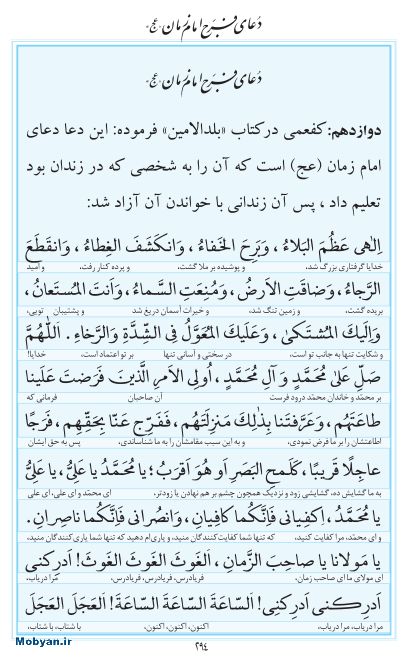 دعای فرج امام زمان «عج»
دعای فرج امام زمان «عج»
دوازدهم: کفعمی در کتاب «بلدالامین» فرموده: این دعا دعای
امام زمان (عج) است که آن را به شخصی که در زندان بود
تعلیم داد ، پس آن زندانی با خواندن آن آزاد شد:
اِلٰهی عَظُمَ البَلاءُ ، وَبَرِحَ الخَفاءُ ، وَانکَشَفَ الغِطاءُ ، وَانقَطَعَ
خدایا گرفتاری بزرگ شد، و پوشیده بر ملا گشت، و پرده کنار رفت، و امید
الرَّجاءُ ، وَضاقَتِ الاَرضُ ، وَمُنِعَتِ السَّماءُ ، وَاَنتَ المُستَعانُ ،
بریده گشت، و زمین تنگ شد، و خیرات آسمان دریغ شد و پشتیبان تویی،
وَاِلَیکَ المُشتَکیٰ ، وَعَلَیکَ المُعَوَّلُ فِی الشِّدَّةِ وَالرَّخاءِ . اَللّٰهُمَّ
و شکایت تنها به جانب تو است، بر تو اعتماد است، در سختی و آسانی تنها خدایا!
صَلِّ عَلیٰ مُحَمَّدٍ وَ آلِ مُحَمَّدٍ ، اُولِی الاَمرِ الَّذینَ فَرَضتَ عَلَینا
بر محمّد و خاندان محمّد درود فرست آن صاحبان فرمانی که
طاعَتَهُم ، وَعَرَّفتَنا بِذٰلِکَ مَنزِلَتَهُم ، فَفَرِّج عَنّا بِحَقِّهِم ، فَرَجًا
اطاعتشان را بر ما فرض نمودی، و به این سبب مقامشان را به ما شناساندی، پس به حق ایشان
عاجِلًا قَریبًا ، کَلَمحِ البَصَرِ اَو هُوَ اَقرَبُ ؛ یا مُحَمَّدُ یا عَلِیُّ ، یا عَلِیُّ
به ما گشایش ده، گشایشی زود و نزدیک همچون چشم بر هم نهادن یا زودتر، ای محمّد و ای علی، ای علی
یا مُحَمَّدُ ، اِکفِیانی فَاِنَّکُما کافِیانِ ، وَانصُرانی فَاِنَّکُما ناصِرانِ .
و ای محمّد، مرا کفایت کنید، که تنها شما کفایت‌کنندگان منید، و یاری‌ام دهید که تنها شما یاری‌کنندگان منید،
یا مَولانا یا صاحِبَ الزَّمانِ ، اَلغَوثَ الغَوثَ الغَوثَ! اَدرِکنی
ای مولای ما ای صاحب زمان، فریادرس، فریادرس، فریادرس، مرا دریاب،
اَدرِکنی اَدرِکنی! اَلسّاعَةَ السّاعَةَ السّاعَةَ! اَلعَجَلَ العَجَلَ
مرا دریاب، مرا دریاب، اکنون، اکنون، اکنون، با شتاب، با شتاب،
Mobyan.ir
۲۹۴